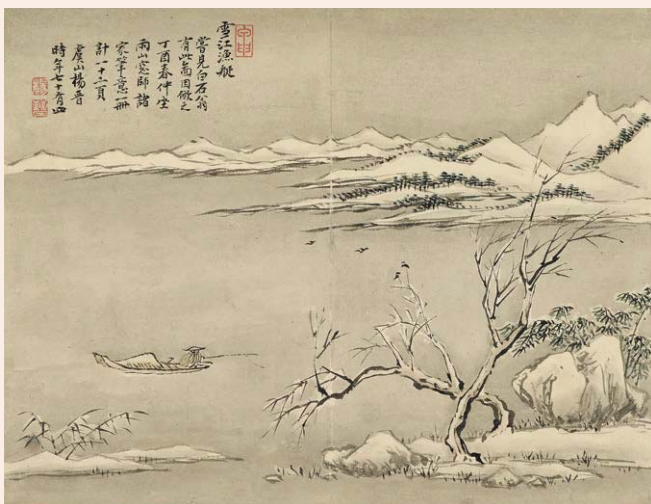 雪江漁艇
嘗見白石翁
有此啚因倣之
丁酉春仲坐
雨山窓師諸
家筆意一冊
計一十二頁
虞山楊晉
時年七十有四